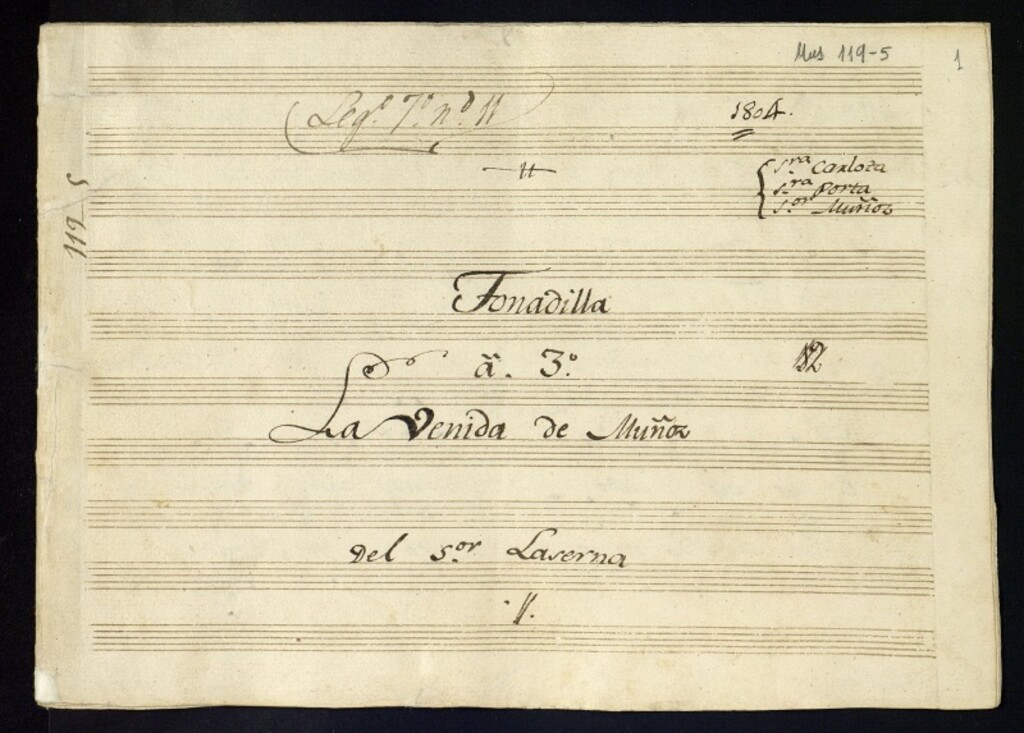 Mus 119-5
1
Leg.º 7.º n.º 11
1804.
S.ra Carlota
S.ra Porta
S.or Muñoz
119-5
Tonadilla
a. 3.º
12
La Venida de Muñoz
Del S.or Laserna